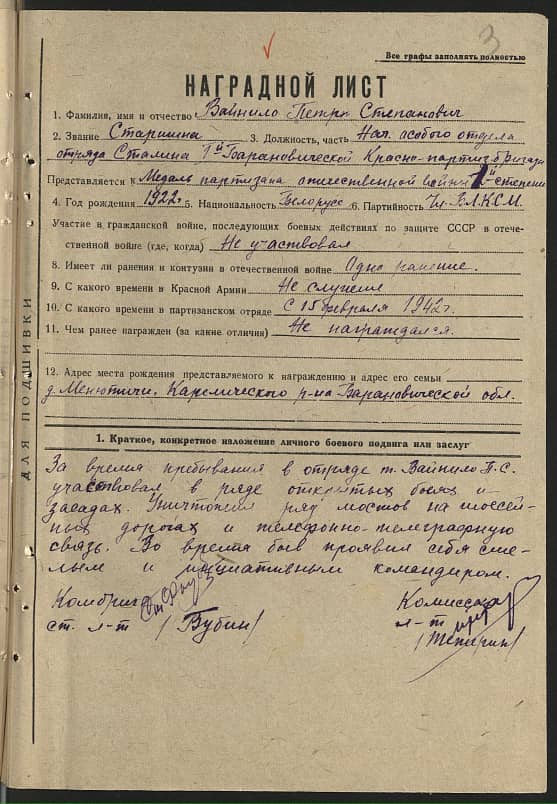 3
Все графы заполнять полностью
НАГРАДНОЙ ЛИСТ
1. Фамилия, имя и отчество Вайнило Петр Степанович
2. Звание Старшина 3. Должность, часть Нач. особого отдела
отряда Сталина 1й Барановической Красно-партиз. бригады
Представляется к Медаль партизана отечественной войны 1й степени
4. Год рождения 1922г. 5. Национальность Белорус 6. Партийность Чл. ВЛКСМ.
Участие в гражданской войне, последующих боевых действиях по защите СССР в отече-
ственной войне (где, когда) Не участвовал
8. Имеет ли ранения и контузии в отечественной войне Одно ранение.
9. С какого времени в Красной Армии Не служил
10. С какого времени в партизанском отряде С 15 февраля 1942г.
11. Чем ранее награжден (за какие отличия) Не награждался.
12. Адрес места рождения представляемого к награждению и адрес его семьи
д. Менютичи, Карелического р-на Барановической обл.
ДЛЯ ПОДШИВКИ
1. Краткое, конкретное изложение личного боевого подвига или заслуг
За время пребывания в отряде т. Вайнило П.С.
участвовал в ряде открытых боях и
засадах. Уничтожил ряд мостов на шоссей-
ных дорогах и телефонно-телеграфную
связь. Во время боя проявил себя сме-
лым и инициативным командиром.
Комбриг Комиссар
ст. л-т /Бубин/ л-т